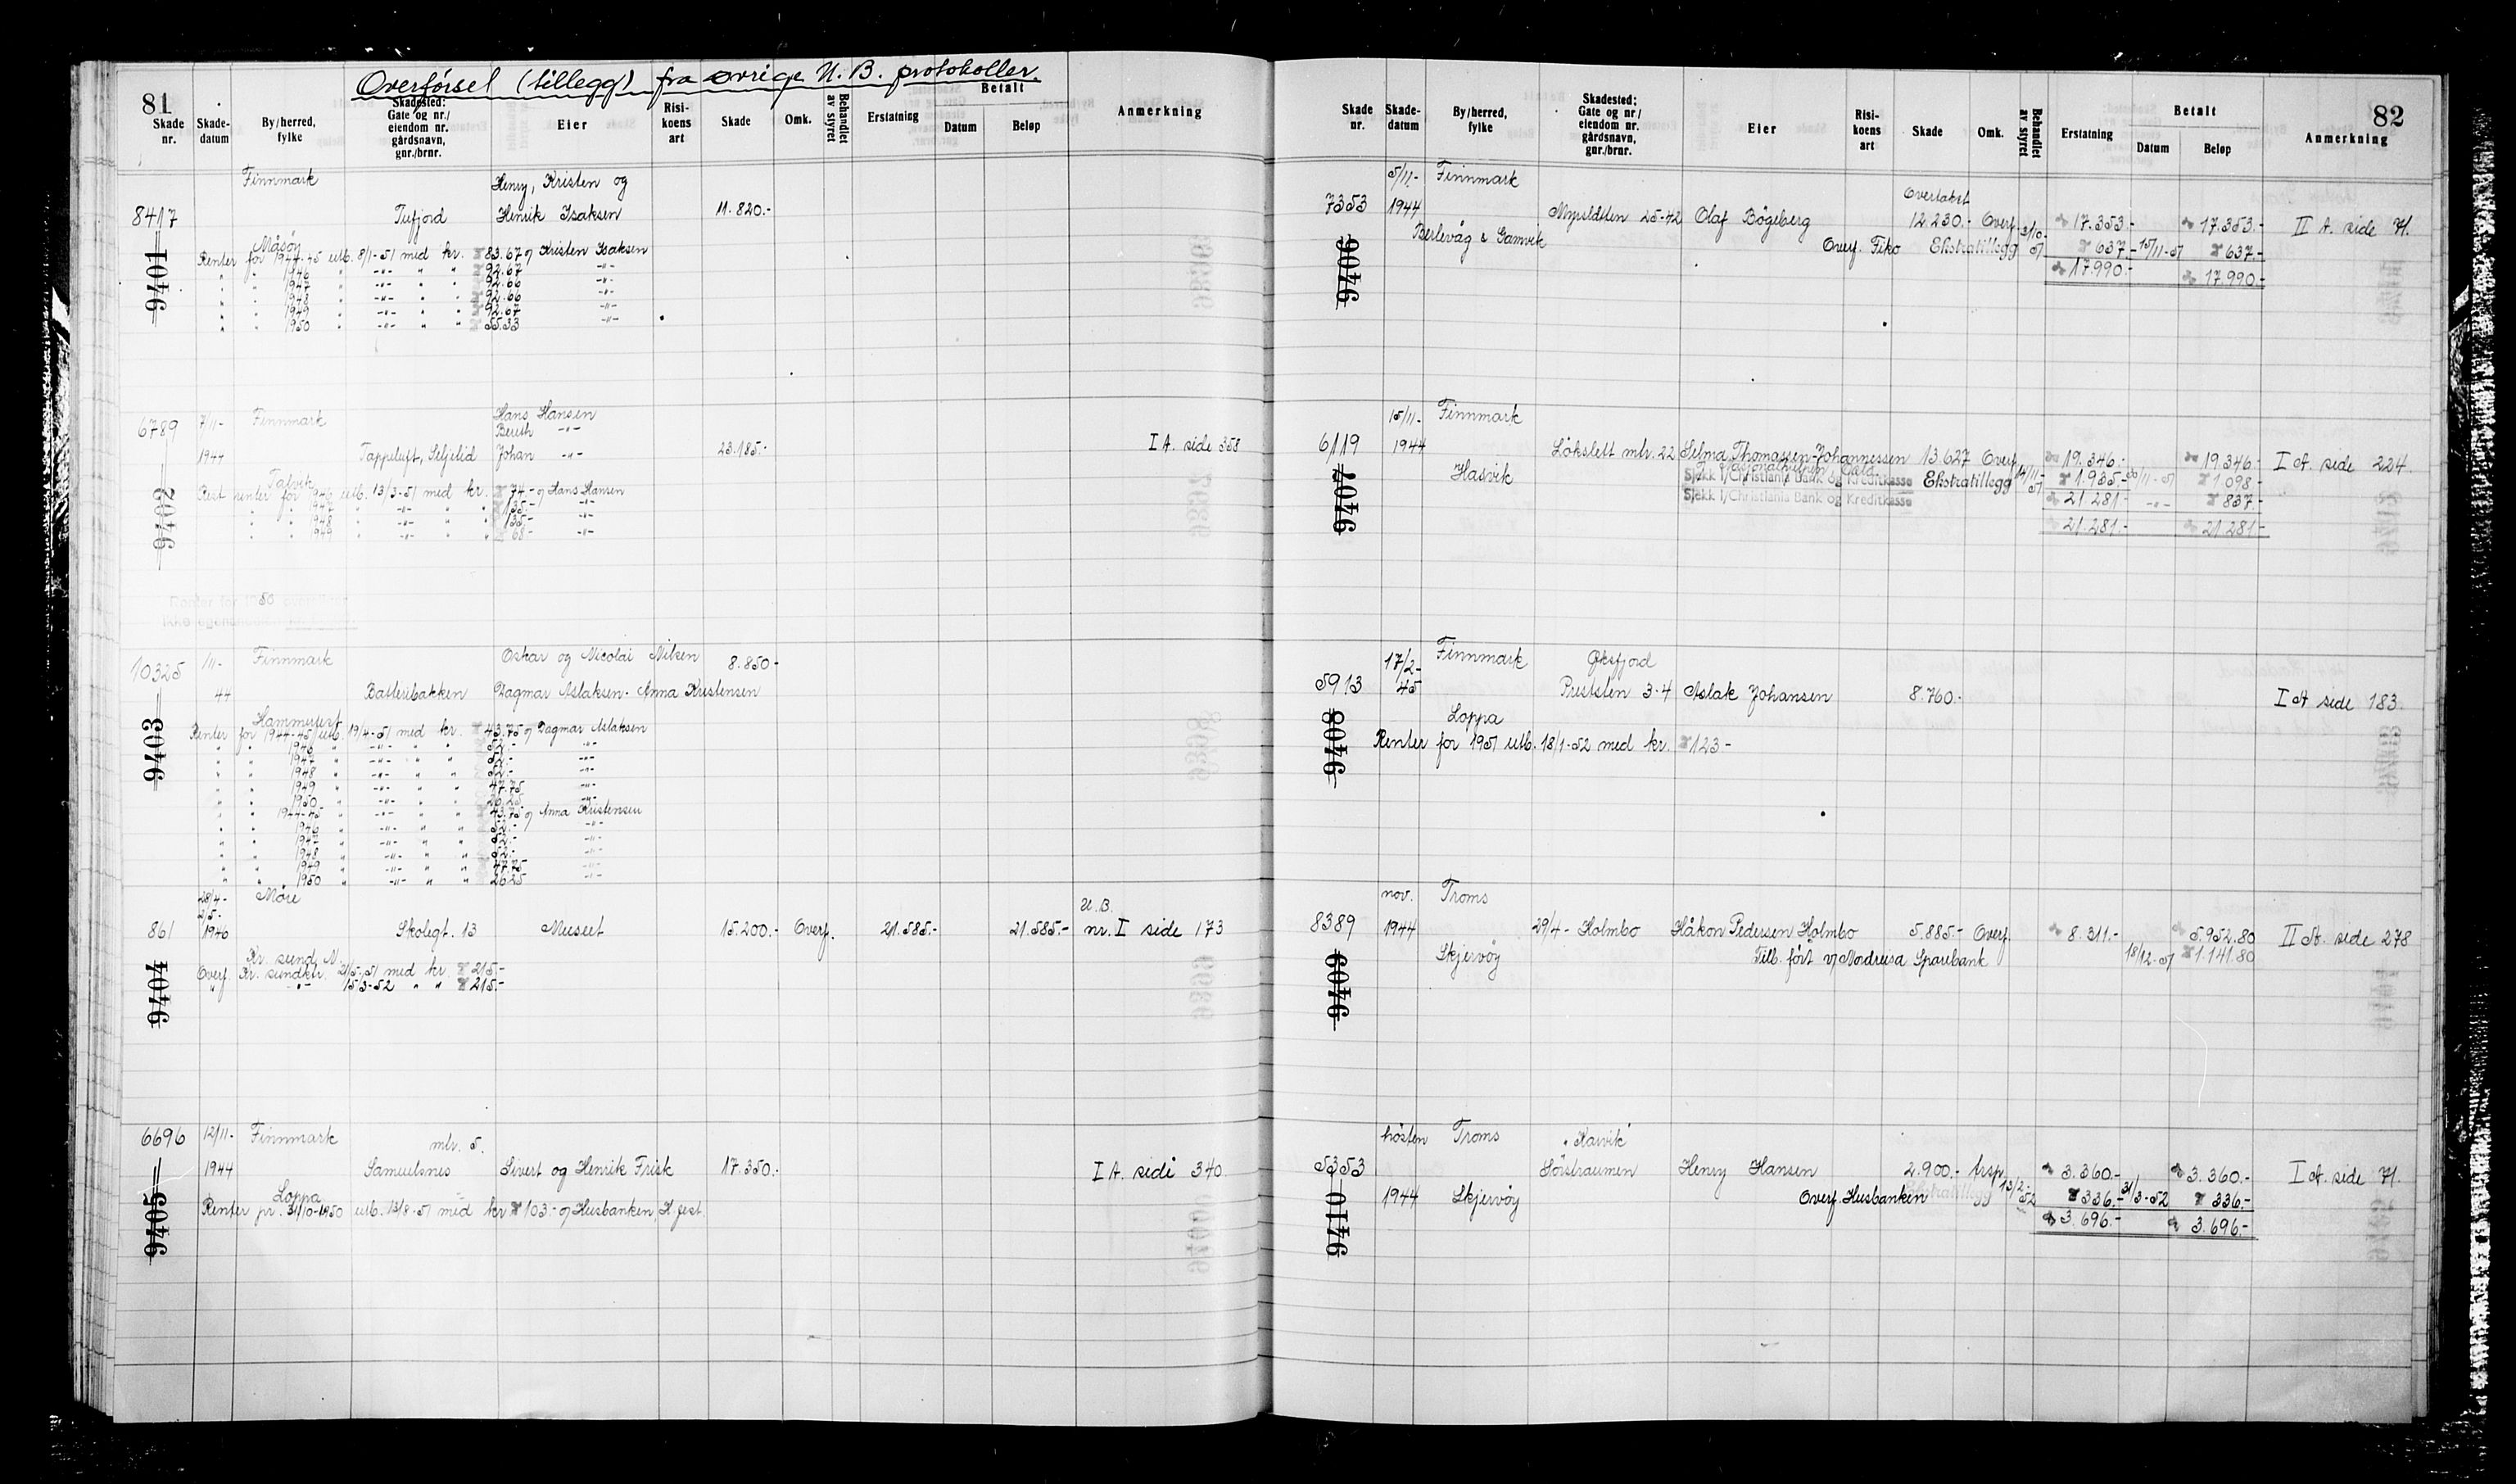 Overførsel (tillegg) fra øvrige U. B. protokoller.
81
Skade nr. Skade-datum By/herred, fylke Skadested: Gate og nr./ eiendom nr. gårdsnavn, gnr./brnr. Eier Risi-koens art Skade Omk. Behandlet av styret Erstatning Betalt Datum Beløp Anmerkning
Finnmark Henry, Kristen og
8417 Tufjord Henrik Isaksen 11.820.-
Måsøy
9401
Renter for 1944-45 utb. 8/1-51 med kr. 83.67 Kristen Isaksen
" " 1946 " -"- " " 92.67 -"-
" " 1947 " -"- " " 92.66 -"-
" " 1948 " -"- " " 92.66 -"-
" " 1949 " -"- " " 92.67 -"-
" " 1950 " -"- " " 55.33 -"-
6789 7/11- Finnmark Hans Hansen
Bereth -"-
1944 Tappeluft, Seljelid Johan -"- 23.185.- I A. side 358
Talvik
9402
Rest renter for 1946 utb. 13/3-51 med kr. 74.- Hans Hansen
" " 1947 " -"- " " 135.- -"-
" " 1948 " -"- " " 135.- -"-
" " 1949 " -"- " " 68.- -"-
Renter for 1950
10325 /11- Finnmark Oskar og Nicolai Nilsen 8.850-
44 Batteribakken Dagmar Aslaksen. Anna Kristensen
Hammerfest
9403
Renter for 1944-45 utb. 19/4-51 med kr. 43.75 Dagmar Aslaksen
" " 1946 " -"- " " 52.- -"-
" " 1947 " -"- " " 52.- -"-
" " 1948 " -"- " " 52.- -"-
" " 1949 " -"- " " 47.75 -"-
" " 1950 " -"- " " 26.25 -"-
" " 1944-45 " -"- " " 43.75 Anna Kristensen
" " 1946 " -"- " " 52.- -"-
" " 1947 " -"- " " 52.- -"-
" " 1948 " -"- " " 52.- -"-
" " 1949 " -"- " " 47.75 -"-
" " 1950 " -"- " " 26.25 -"-
28/4- Møre
2/5- U.B.
861 1946 Skolegt. 13 Museet 15.200.- Overf. 21.585.- 21.585.- nr. I side 173
Kr. sund N.
9404
Overf. Kr. sundktr. 21/5-51 med kr. 215.-
" -"- 15/3-52 " " 215.-
6696 12/11- Finnmark mtr. 5.
1944 Samuelsnes Sivert og Henrik Frisk 17.350.- I A. side 340
Loppa
9405
Renter pr. 31/10-1950 utb. 13/8-51 med kr 103.- Husbanken, H.fest.
82
Skade nr. Skade-datum By/herred, fylke Skadested: Gate og nr/ eiendom nr. gårdsnavn, gnr./brnr. Eier Risi-koens art Skade Omk. Behandlet av styret Erstatning Betalt Datum Beløp Anmerkning
5/11- Finnmark Overtakst
7353 1944 25-42 Olaf Bögeberg 12.230.- Overf. 17.353.- 17.353.- II A. side 71.
Berlevåg & Gamvik Overf. Fiko Ekstratillegg 637.- 15/11-51 637.-
9406
17.990.- 17.990.-
15/11- Finnmark
6119 1944 Lökslett mtr. 22 Selma Thomassen-Johannessen 13627 Overf. 19.346.- 19.346.- I A. side 224.
Hasvik
Sjekk l/Christiania Bank og Kreditkasse Ekstratillegg 1.935.- 20/11-51 1.098.-
9407
Sjekk l/Christiania Bank og Kreditkasse 21 281.- -"- 837.-
21.281.- 21.281.-
17/2- Finnmark Øksfjord
5913 45 Prestsletn 3-4 Aslak Johansen 8.760.- I A side 183.
Loppa
9408
Renter for 1951 utb. 18/1-52 med kr. 123.-
nov. Troms
8389 1944 29/4- Holmbo Håkon Pedersen Holmbo 5.885.- Overf. 8.311.- 5.952.80 II A. side 278
Skjervöy Nordreisa Sparebank 18/12-51 1.141.80
9409
hösten Troms "Karvik"
5353 Sörstraumen Henry Hansen 2.900.- trsp. 3.360.- 3.360.- I A. side 71.
1944 Skjervöy Overf. Husbanken Ekstratillegg 13/2-52 336.- 31/3-52 336.-
9410
3.696.- 3.696.-